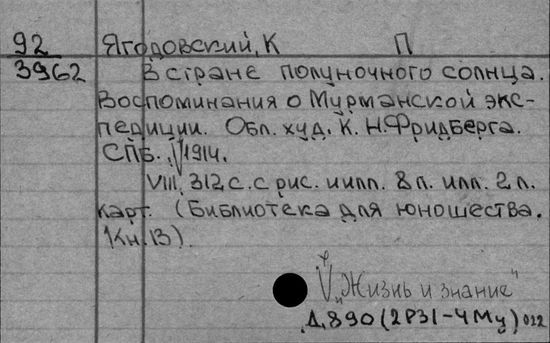 92 Ягодовский, К П
3962 В стране полуночного солнца.
Воспоминания о Мурманской экс-
педиции. Обл. худ. К. Н. Фридберга.
СПБ. 1914.
VIII, 312 с. с рис. и илл. 8 л. илл. 2 л.
карт. (Библиотека для юношества.
Кн. 13).
"Жизнь и знание"
Д.890 (2Р31-4Му) 022